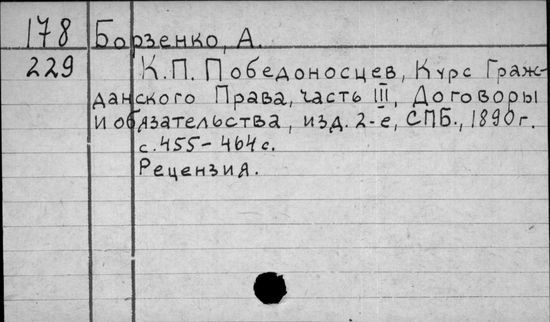 178 Борзенко, А.
229 К.П. Победоносцев, Курс Граж-
данского Права, часть III, Договоры
и обязательства, изд. 2-е, СПБ., 1890г.
с. 455-464 с.
Рецензия.